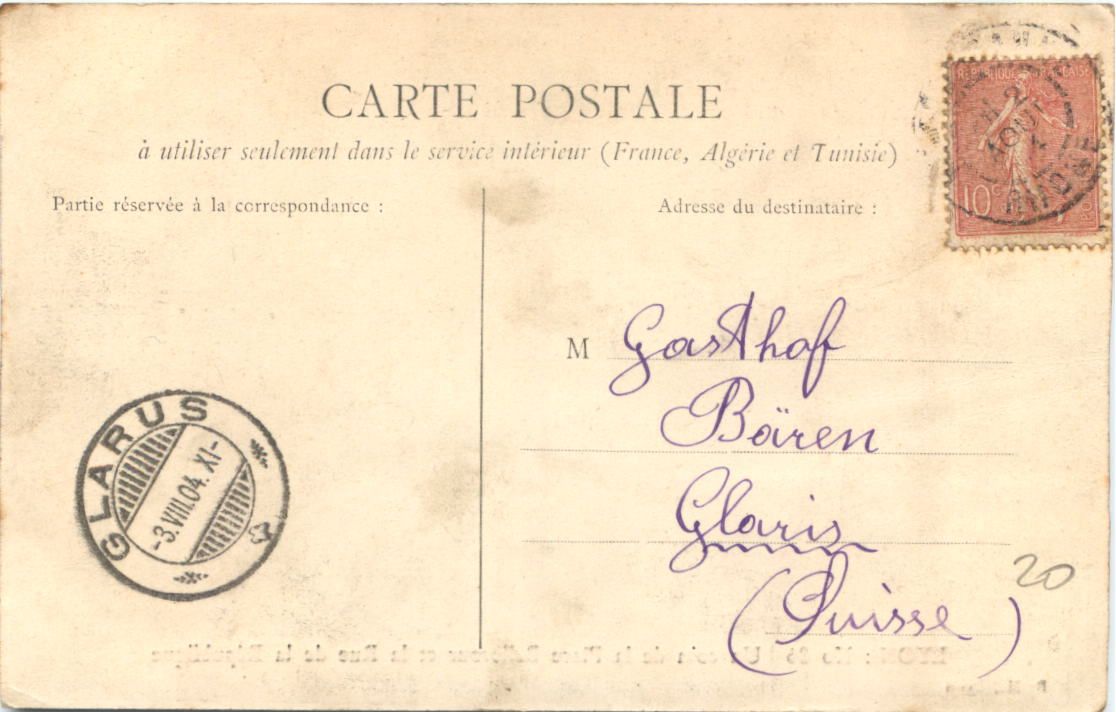 CARTE POSTALE
à utiliser seulement dans le service intérieur (France, Algérie et Tunisie)
Partie réservée à la correspondance :
Adresse du destinataire :
RÉPUBLIQUE FRANÇAISE
10c
AOUT
M Gasthof
Bären
Glaris
(Suisse)
20
GLARUS
-3.VIII.04.XI-